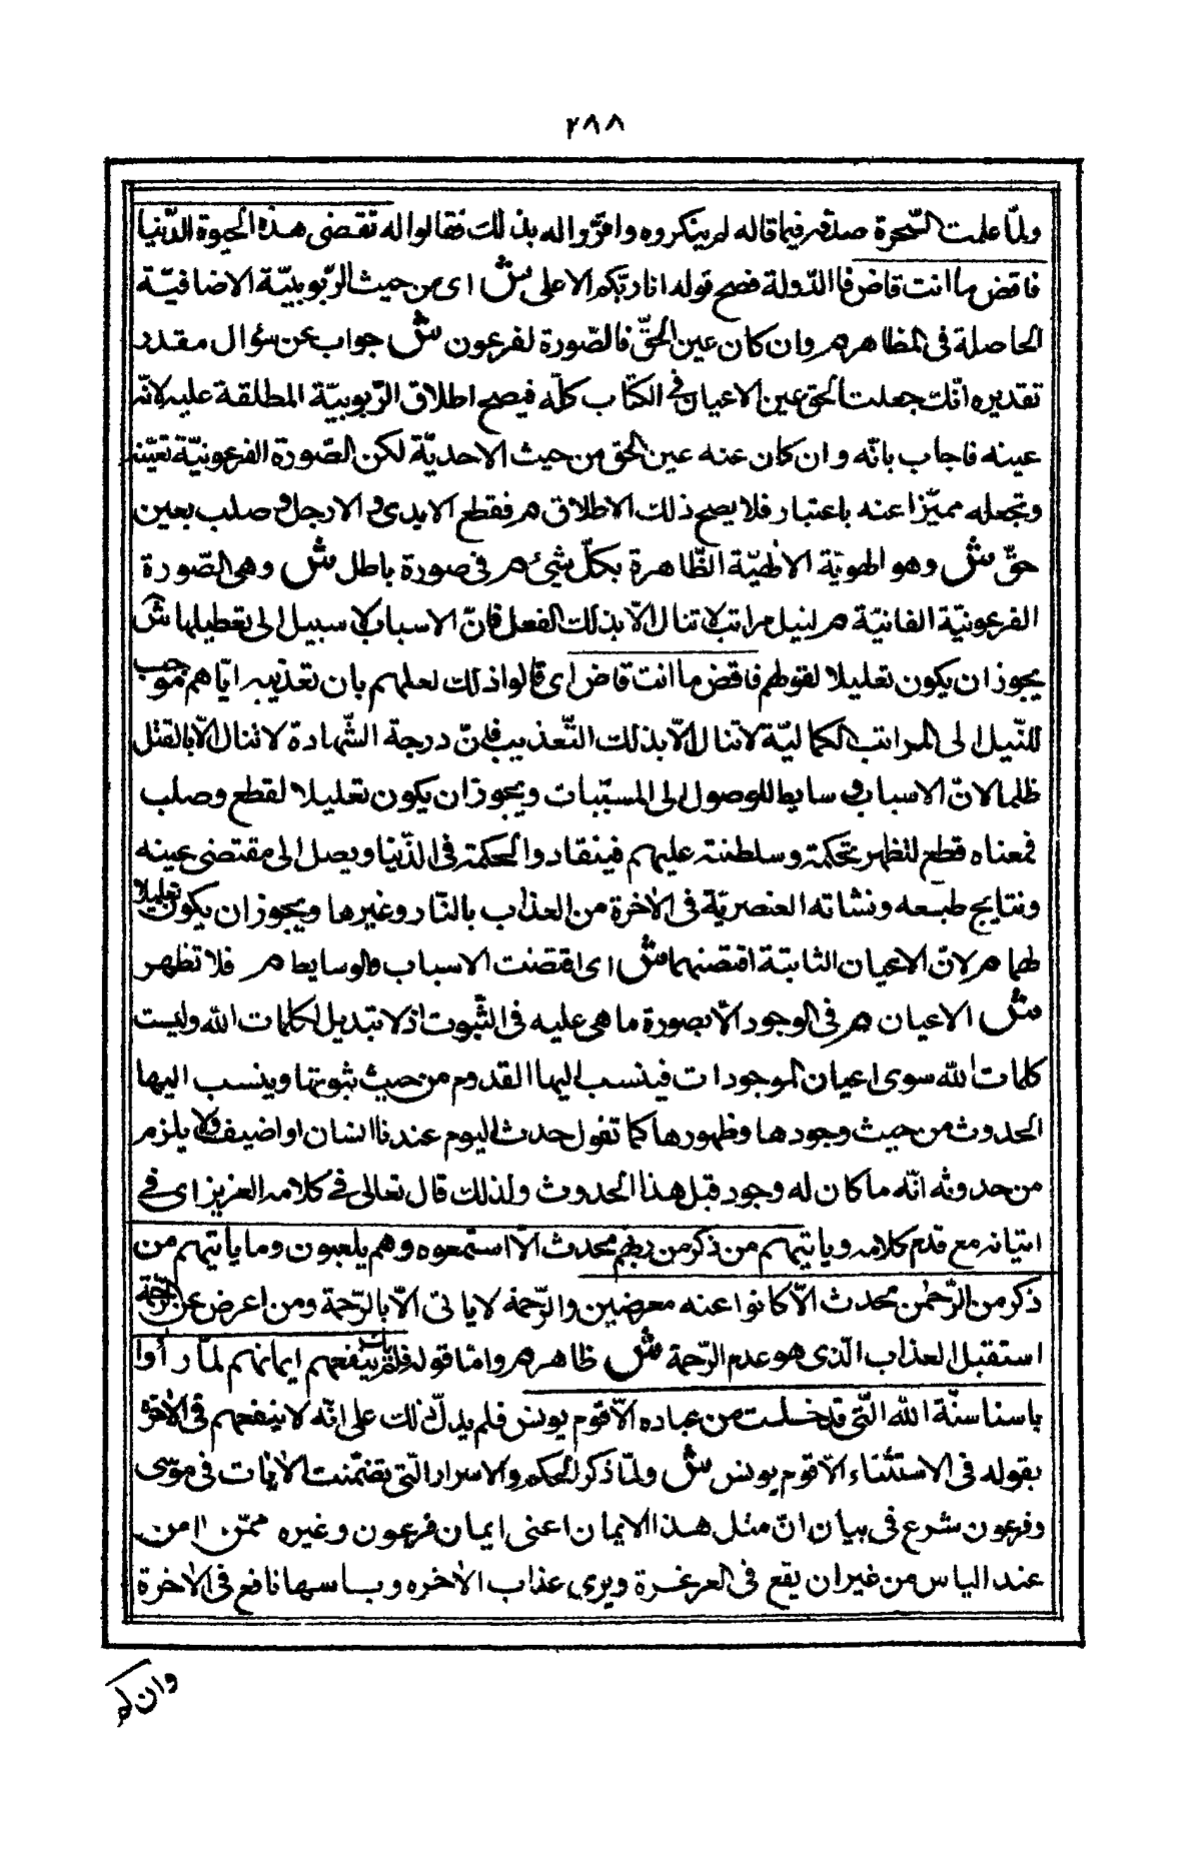 ٢٨٨
ولمّا علمت السّحرة صدقه فيما قاله لم ينكروه واقرّوا له بذلك فقالوا له تقضى هذه الحيوة الدّنيا
فاقض ما انت قاض فالدّولة لك فصح قوله انا ربّكم الاعلى ش اى من حيث الرّبوبيّة الاضافيّة
الحاصلة فى المظاهر م وان كان عين الحقّ فالصّورة لفرعون ش جواب عن سؤال مقدر
تقديره انّك جعلت الحق عين الاعيان فى الكتاب كلّه فيصح اطلاق الرّبوبيّة المطلقة عليه لانّه
عينه فاجاب بانّه وان كان عنه عين الحق من حيث الاحديّة لكن الصّورة الفرعونيّة تعيّنه
وتجعله مميّزا عنه باعتبار فلا يصح ذلك الاطلاق م فقطع الايدى والارجل وصلب بعين
حقّ ش وهو الهويّة الالهيّة الظّاهرة بكلّ شئ م فى صورة باطل ش وهى الصّورة
الفرعونيّة الفانيّة م لنيل مراتب لا تنال الّا بذلك الفعل فانّ الاسباب لا سبيل الى تعطيلها ش
يجوز ان يكون تعليلا لقولهم فاقض ما انت قاض اى قالوا ذلك لعلمهم بان تعذيبه ايّاهم موجب
للنّيل الى المراتب الكماليّة لا تنال الّا بذلك التّعذيب فانّ درجة الشّهادة لا تنال الّا بالقتل
ظلما لانّ الاسباب وسايط للوصول الى المسبّبات ويجوز ان يكون تعليلا لقطع وصلب
فمعناه قطع لتظهر تحكمه وسلطنته عليهم فينقادوا لحكمه فى الدّنيا ويصل الى مقتضى عينه
ونتايج طبعه ونشاته العنصريّة فى الاخرة من العذاب بالنّار وغيرها ويجوز ان يكون تعليلا
لهما م لانّ الاعيان الثابتة اقتضتها ش اى اقتضت الاسباب والوسايط م فلا تظهر
ش الاعيان م فى الوجود الّا بصورة ما هى عليه فى الثّبوت اذ لا تبديل لكلمات الله وليست
كلمات الله سوى اعيان الموجودات فينسب اليها القدم من حيث ثبوتها وينسب اليها
الحدوث من حيث وجودها وظهورها كما تقول حدث اليوم عندنا انسان او ضيف ولا يلزم
من حدوثه انّه ما كان له وجود قبل هذا الحدوث ولذلك قال تعالى فى كلامه العزيز اى فى
اتيانه مع قدم كلامه وياتيهم من ذكر من ربهم محدث الّا استمعوه وهم يلعبون وما ياتيهم من
ذكر من الرّحمن محدث الّا كانوا عنه معرضين والرّحمة لا ياتى الّا بالرّحمة ومن اعرض عن الرّحمة
استقبل العذاب الّذى هو عدم الرّحمة ش ظاهر م وامّا قوله فلم يك ينفعهم ايمانهم لمّا رأوا
باسنا سنّة الله الّتى قد خلت من عباده الّا قوم يونس فلم يدل ذلك على انّه لا ينفعهم فى الآخرة
بقوله فى الاستثناء الّا قوم يونس ش ولمّا ذكر الحكم والاسرار الّتى تضمّنت الآيات فى موسى
وفرعون شرع فى بيان انّ مثل هذا الايمان اعنى ايمان فرعون وغيره ممّن امن
عند الياس من غير ان يقع فى الغرغرة ويرى عذاب الآخره وباسها نافع فى الآخرة